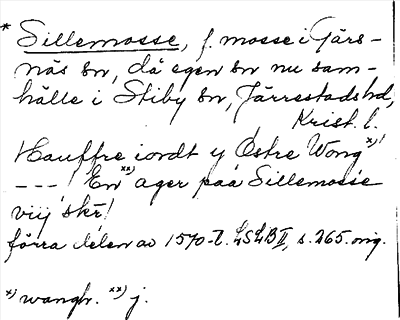 * Sillemosse, f. mosse i Gärs-
näs sn, då egen sn nu sam-
hälle i Stiby sn, Järrestads hd,
Krist. l.
Hauffre iordt y Östre Wong x)!
--- ! En xx) ager paa Sillemosse
viij sker!
förra delen av 1570-t. LSLB II, s. 265. orig.
x) wangh. xx) j.